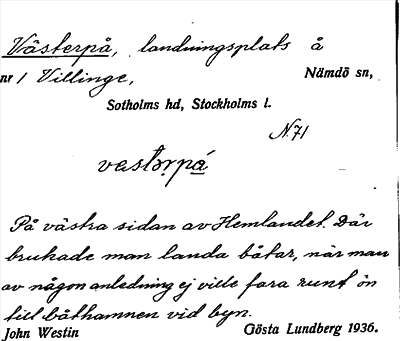 Västerpå, landningsplats å
nr 1 Villinge, Nämdö sn,
Sotholms hd, Stockholms l.
N71
vestərpá
På västra sidan av Hemlandet. Där
brukade man landa båtar, när man
av någon anledning ej ville fara runt ön
till båthamnen vid byn.
John Westin Gösta Lundberg 1936.